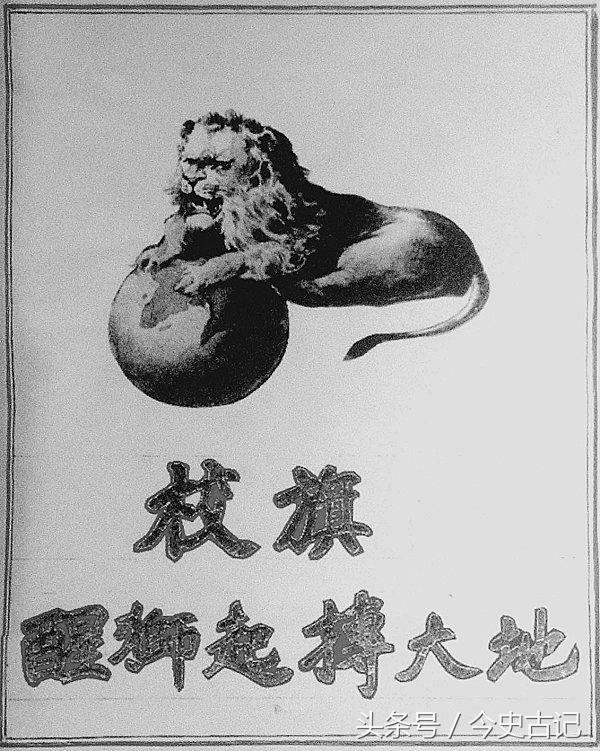 校旗
醒獅起搏大地
头条号 / 今史古记